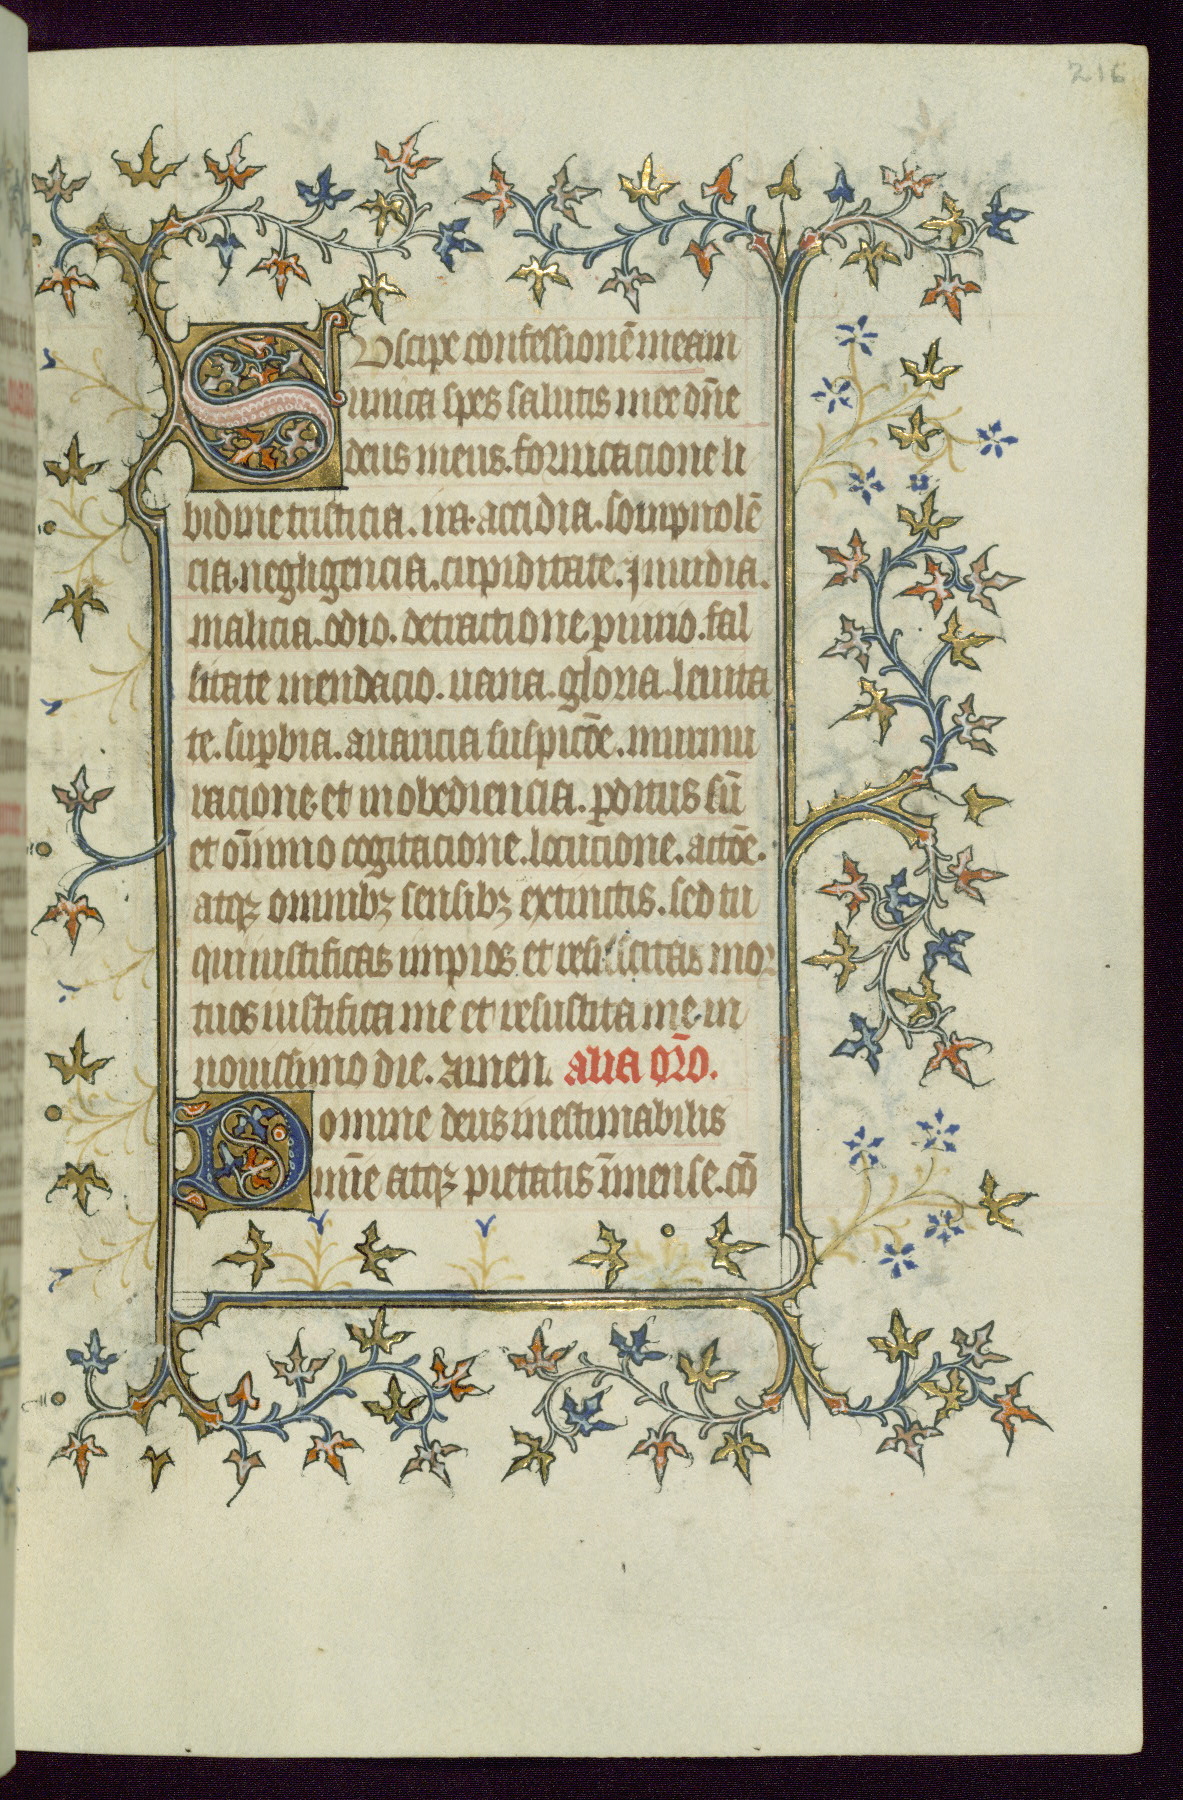 216
Suscipe confessionē meam
unica spes salutis mee dn̄e
deus meus. fornicacione li
bidine tristicia. ira. accidia. sompnolē
cia. negligencia. cupiditate. Inuidia.
malicia. odio. detractione. piurio. fal
sitate mendacio. uana. gloria. leuita
te. supbia. auaricia suspicōe. murmu
racione. et inobediencia. pditus sū
et oīnimo cogitacione. locucione. actōe.
atqꝫ omnibꝫ sensibꝫ extinctis. sed tu
qui iustificas impios et resuscitas mor
tuos iustifica me et resuscita me. in
nouissimo die. Amen. alia or̄o.
Domine deus inestimabilis
mīe atqꝫ pietatis īmense. cō